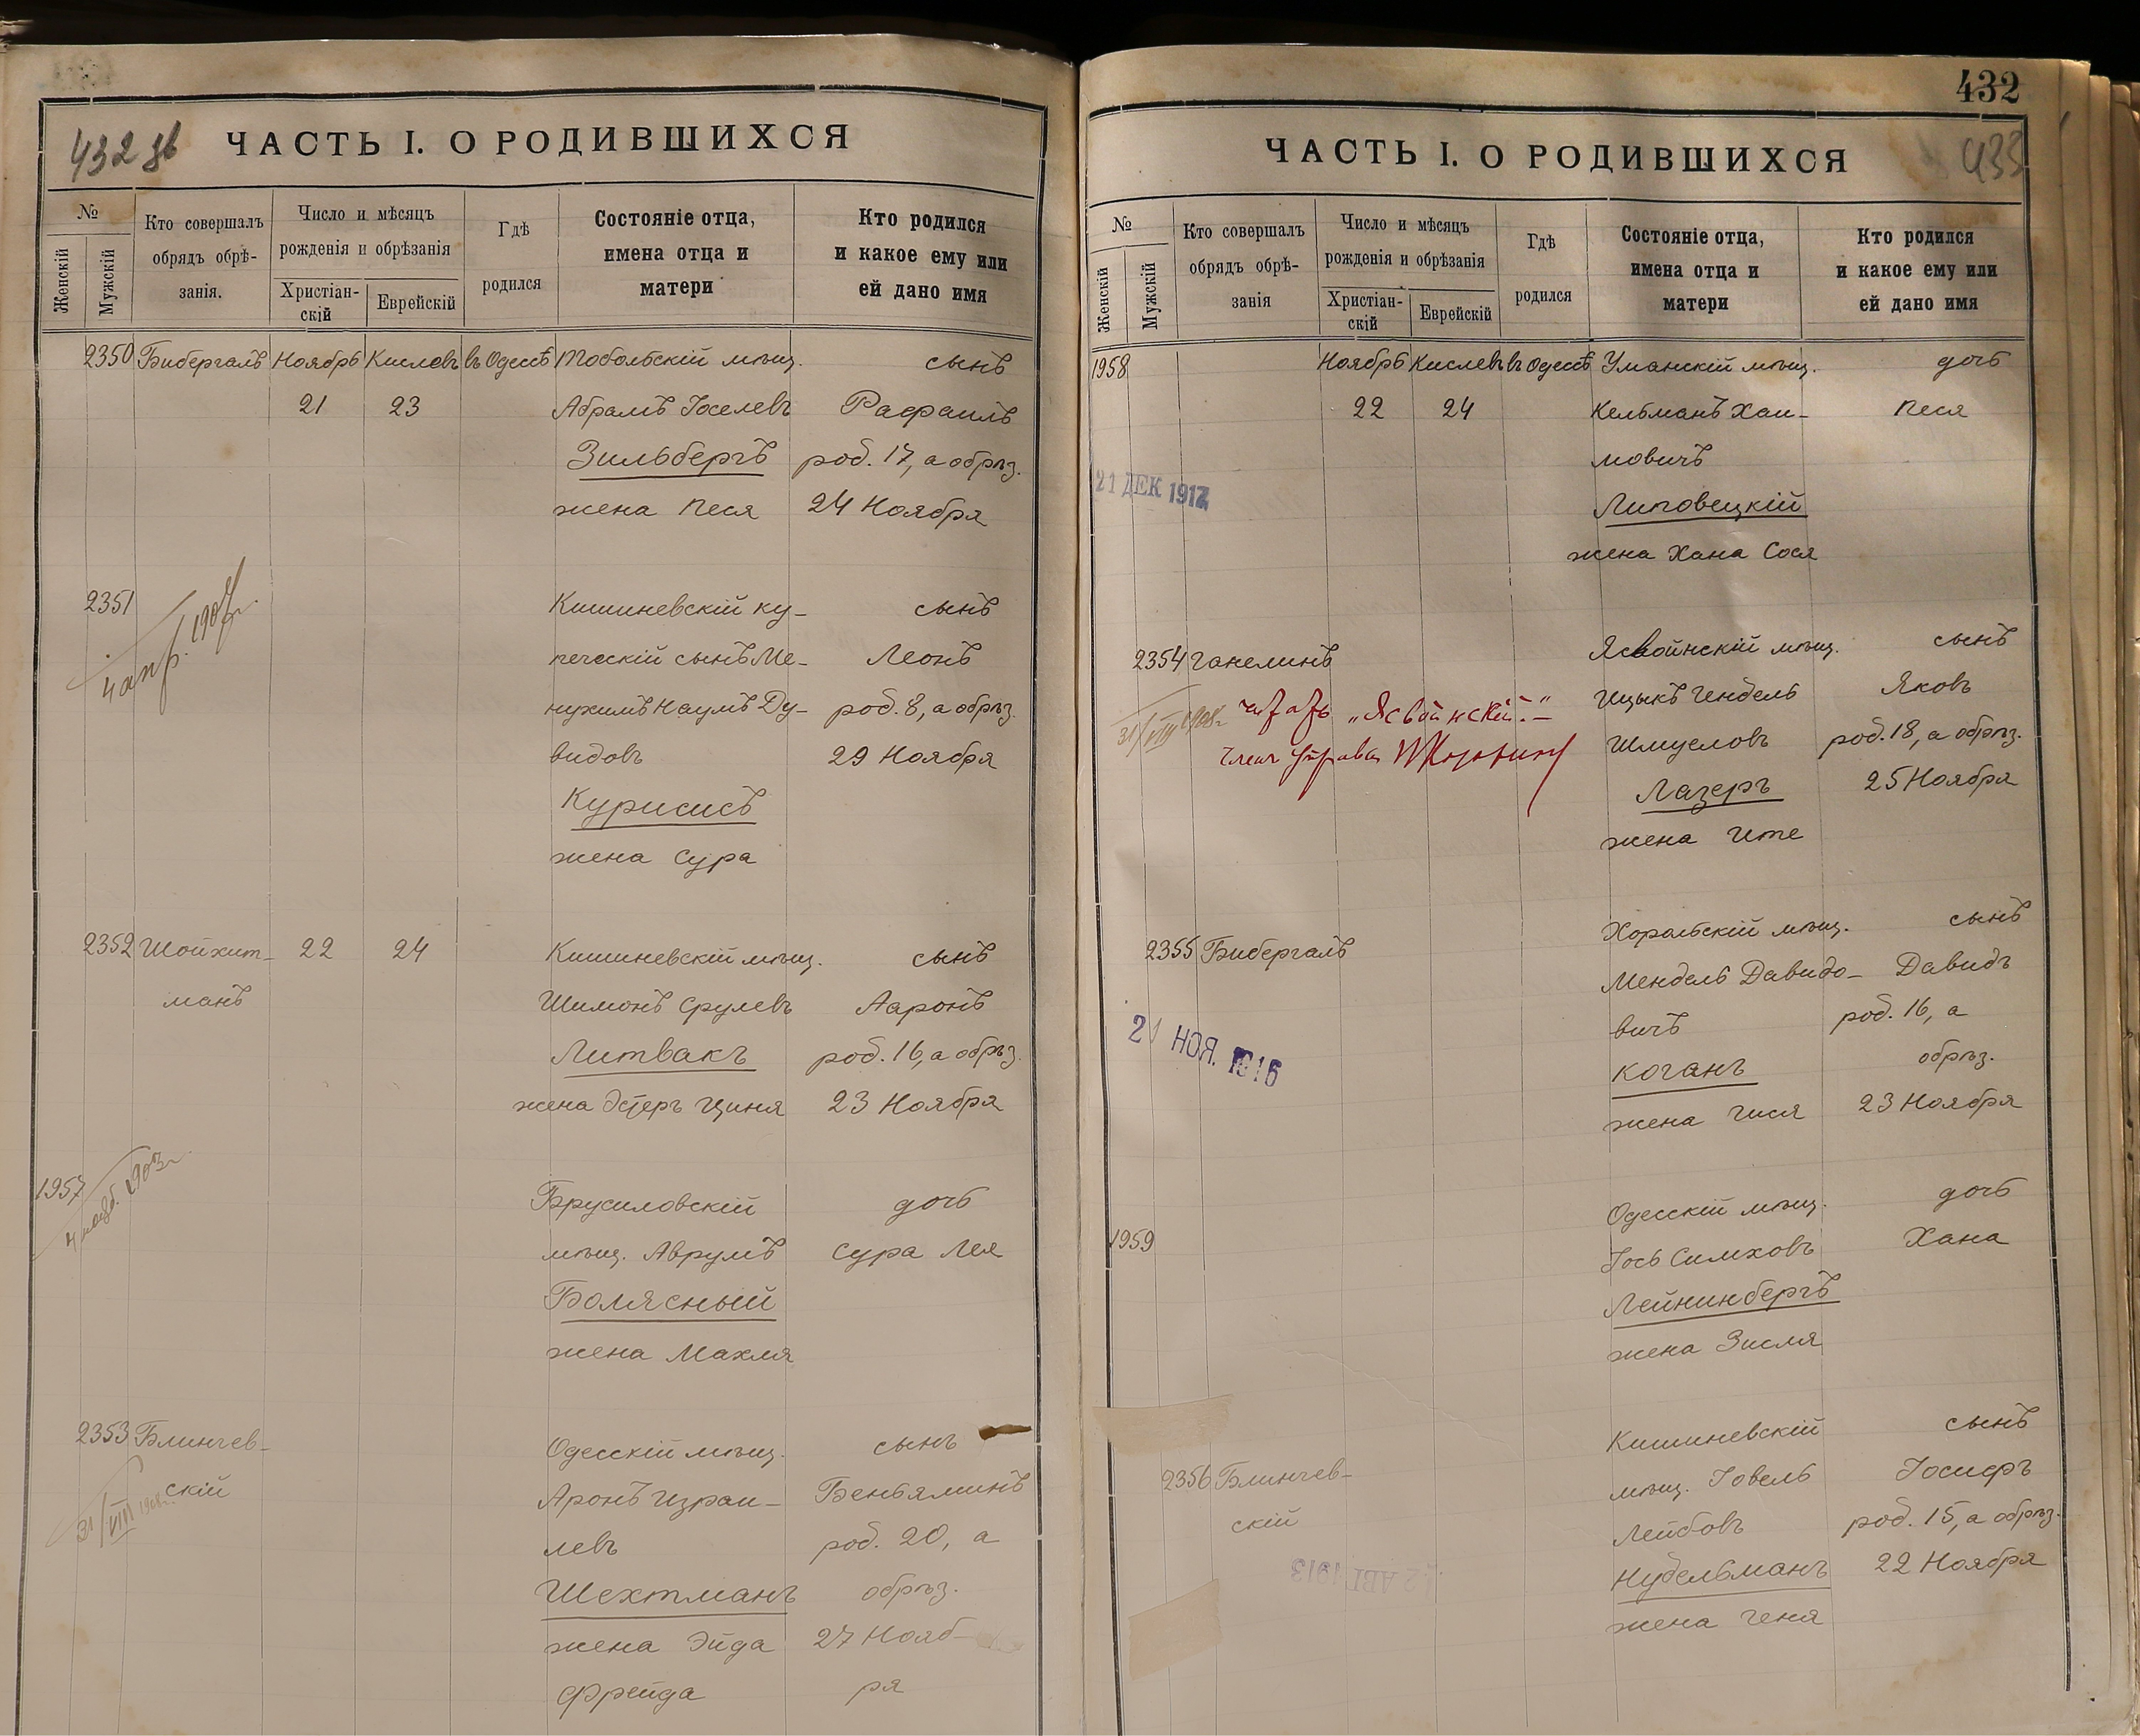 432 зв
ЧАСТЬ I. О РОДИВШИХСЯ
№
Женскій
Мужскій
Кто совершалъ
обрядъ обрѣ-
занія.
Число и мѣсяцъ
рожденія и обрѣзанія
Христіан-
скій
Еврейскій
Гдѣ
родился
Состояніе отца,
имена отца и
матери
Кто родился
и какое ему или
ей дано имя
2350 Бибергалъ Ноябрь Кислевъ въ Одессѣ Тобольскій мѣщ. сынъ
21 23 Абрамъ Іоселевъ Рафаилъ
Зильбергъ род. 17, а обрѣз.
жена Песя 24 Ноября
2351 Кишиневскій ку- сынъ
4 апр. 1907 г.
печескій сынъ Ме- Леонъ
нухимъ Наумъ Ду- род. 8, а обрѣз.
видовъ 29 Ноября
Курисисъ
жена Сура
2352 Шойхит- 22 24 Кишиневскій мѣщ. сынъ
манъ Шимонъ Срулевъ Ааронъ
Литвакъ род. 16, а обрѣз.
жена Эстеръ Циня 23 Ноября
1957 Брусиловскій дочь
1903 г.
мѣщ. Аврумъ Сура Лея
Болясный
жена Махля
2353 Блинчев- Одесскій мѣщ. сынъ
скій Аронъ Израи- Беньяминъ
31/VIII 1908 г.
левъ род. 20, а
Шехтманъ обрѣз.
жена Эйда 27 Нояб-
Фрейда ря
432
433
ЧАСТЬ I. О РОДИВШИХСЯ
№
Женскій
Мужскій
Кто совершалъ
обрядъ обрѣ-
занія
Число и мѣсяцъ
рожденія и обрѣзанія
Христіан-
скій
Еврейскій
Гдѣ
родился
Состояніе отца,
имена отца и
матери
Кто родился
и какое ему или
ей дано имя
1958 Ноябрь Кислевъ въ Одессѣ Уманскій мѣщ. дочь
22 24 Кельманъ Хаи- Песя
мовичъ
21 ДЕК 1912
Липовецкій
жена Хана Сося
2354 Ганелинъ Ясвойнскій мѣщ. сынъ
31/VIII 1908 г. читать „Ясвойнскій." Ицыкъ Индель Яковъ
Членъ Управы Шмуеловъ род. 18, а обрѣз.
Лазеръ 25 Ноября
жена Ите
2355 Бибергалъ Хорольскій мѣщ. сынъ
Мендель Давидо- Давидъ
21 НОЯ. 1916
вичъ род. 16, а
Коганъ обрѣз.
жена Гися 23 Ноября
1959 Одесскій мѣщ. дочь
Іось Симховъ Хана
Лейнинбергъ
жена Зисля
2356 Блинчев- Кишиневскій сынъ
скій мѣщ. Іовель Іосифъ
Лейбовъ род. 15, а обрѣз.
2 АВГ 1913
Нудельманъ 22 Ноября
жена Геня